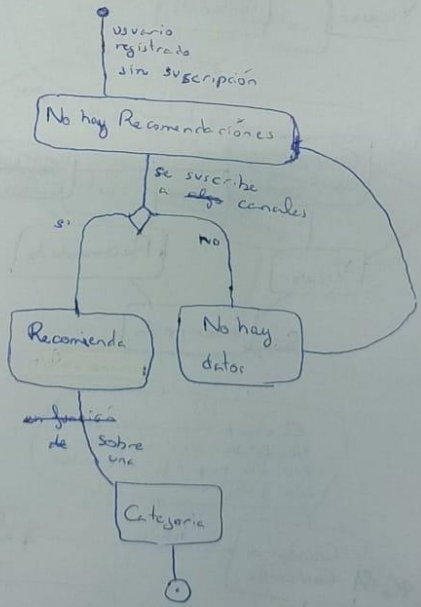 usuario
registrado
sin suscripción
No hay Recomendaciónes
se suscribe
a canales
si
No
Recomienda
No hay
datos
en función
de sobre
una
Categoria